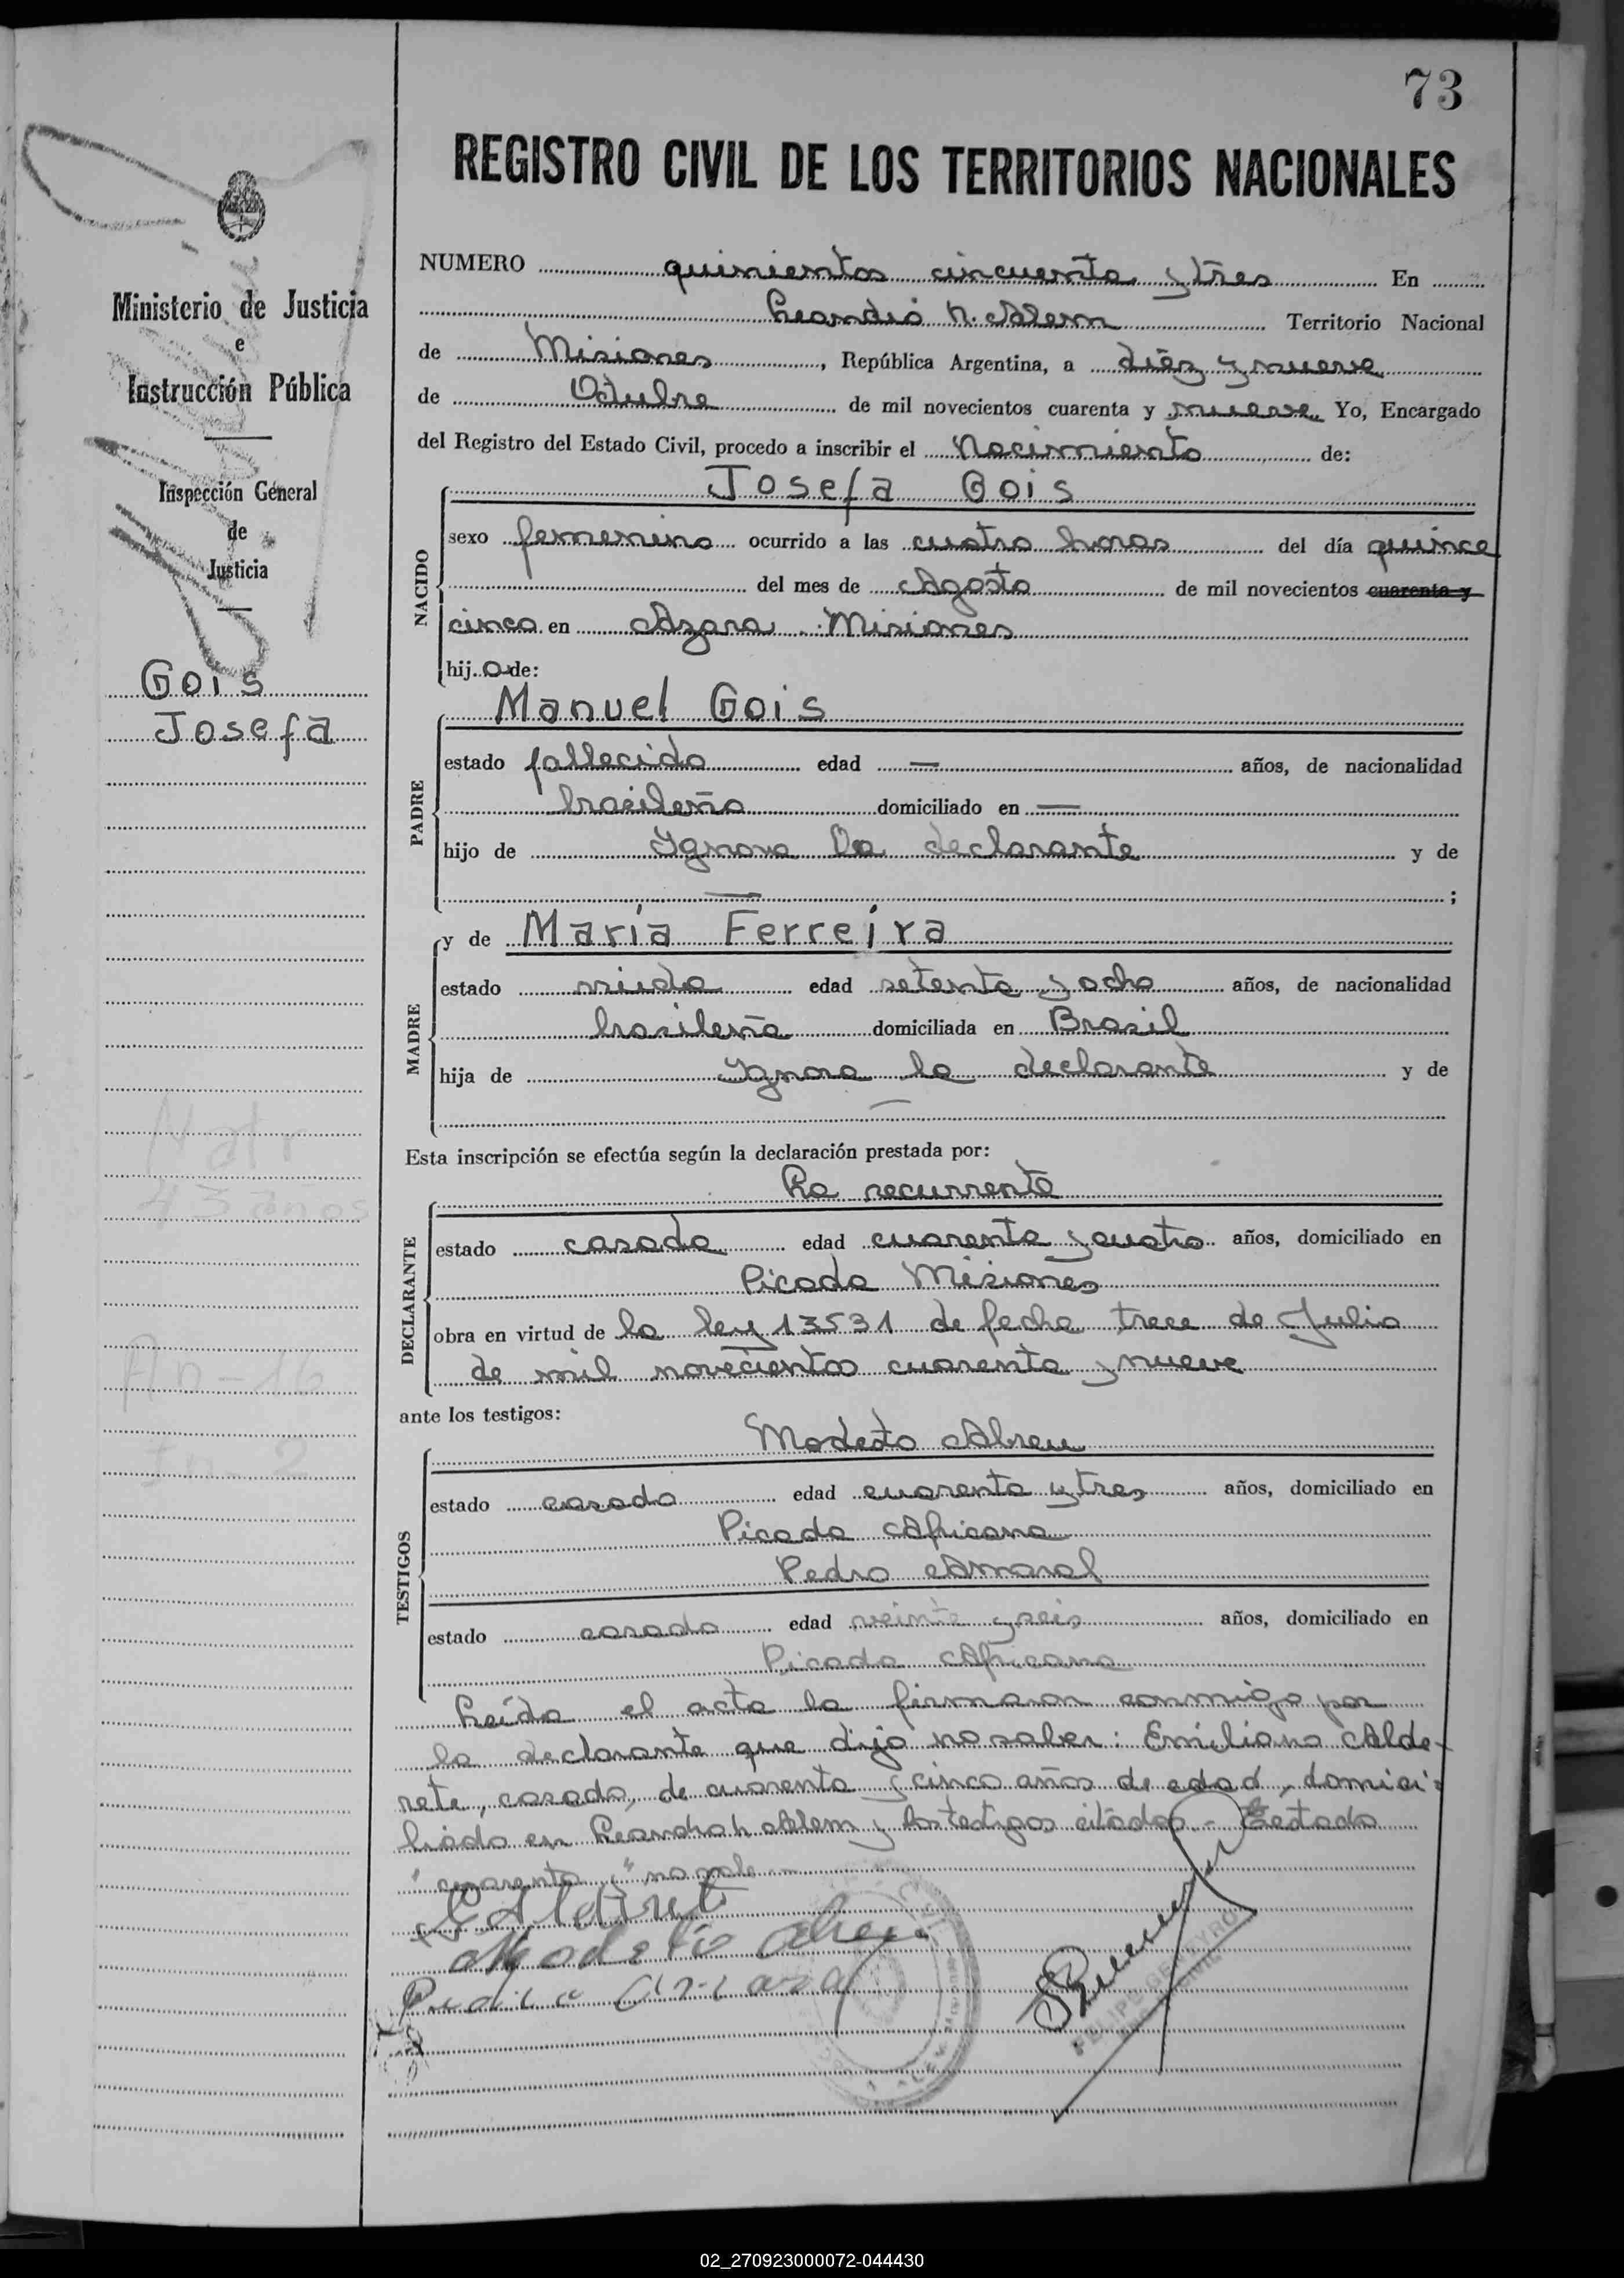 73
REGISTRO CIVIL DE LOS TERRITORIOS NACIONALES
Ministerio de Justicia
e
Instrucción Pública
Inspección General
de
Justicia
Gois
Josefa
Natr
43 años
An-16
In-2
NUMERO quinientos cincuenta y tres En
Leandro N. Alem Territorio Nacional
de Misiones, República Argentina, a diez y nueve
de Octubre de mil novecientos cuarenta y nueve Yo, Encargado
del Registro del Estado Civil, procedo a inscribir el Nacimiento de:
Josefa Gois
NACIDO
sexo femenino ocurrido a las cuatro horas del día quince
del mes de Agosto de mil novecientos cuarenta y
cinco en Azara - Misiones
hija de:
Manuel Gois
PADRE
estado fallecido edad — años, de nacionalidad
brasileña domiciliado en —
hijo de Ygnora la declarante y de
— ;
y de María Ferreira
MADRE
estado viuda edad setenta y ocho años, de nacionalidad
brasileña domiciliada en Brasil
hija de Ygnora la declarante y de
—
Esta inscripción se efectúa según la declaración prestada por:
La recurrente
DECLARANTE
estado casada edad cuarenta y cuatro años, domiciliado en
Picada Misiones
obra en virtud de la ley 13531 de fecha trece de Julio
de mil novecientos cuarenta y nueve
ante los testigos:
Modesto Abreu
TESTIGOS
estado casado edad cuarenta y tres años, domiciliado en
Picada Africana
Pedro Amaral
estado casado edad veinte y seis años, domiciliado en
Picada Africana
Leída el acta la firmaron conmigo por
la declarante que dijo no saber: Emiliano Alde-
rete, casado, de cuarenta y cinco años de edad, domici-
liado en Leandro N. Alem y los testigos citados.- Testado
"cuarenta y" no vale
E Alderet
Modesto Abreu
Pedro Amaral
02_270923000072-044430